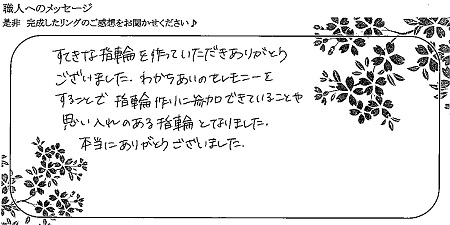 職人へのメッセージ
是非 完成したリングのご感想をお聞かせください♪
すてきな指輪を作っていただきありがとう
ございました。わかちあいのセレモニーを
することで指輪作りに参加できていることや
思い入れのある指輪となりました。
本当にありがとうございました。